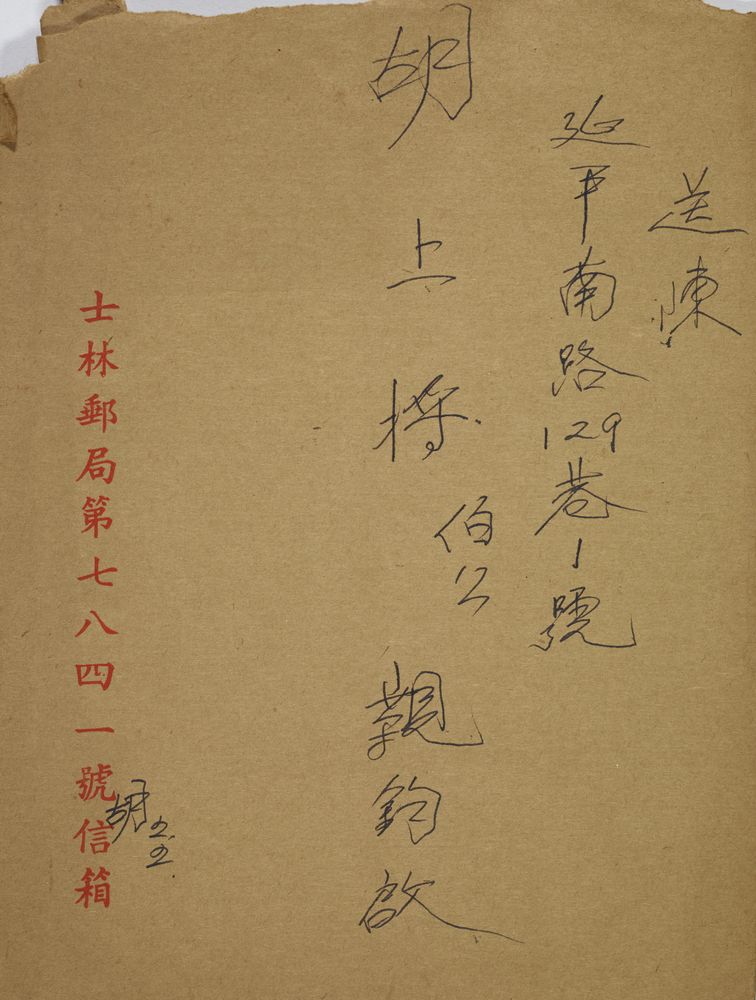 送陳
延平南路129巷1號
胡上將伯公親鈞啟
士林郵局第七八四一號信箱
胡